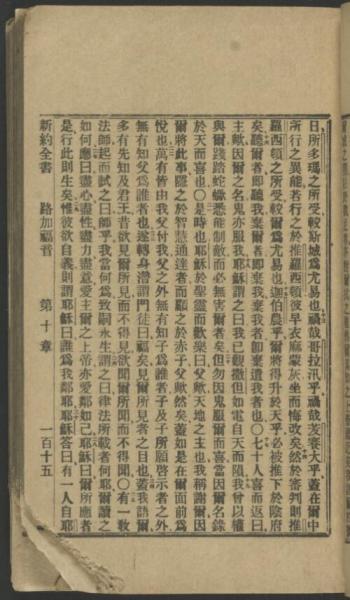 日所多瑪之所受較斯城爲尤易也禍哉哥拉汛乎禍哉茇賽大乎蓋在爾中
所行之異能若行之於推羅西頓彼早衣麻蒙灰坐而悔改矣然於審判則推
羅西頓之所受較爾爲尤易也迦伯農乎爾將得升於天乎必被推下於陰府
矣聽爾者卽聽我棄爾者卽棄我棄我者卽棄遣我者也〇七十人喜而返曰
主歟因爾之名鬼亦服我耶穌謂之曰我已觀撒但如電自天而隕我曾以權
與爾踐踏蛇蠍悉能制敵而必無害爾者矣但勿因鬼服爾而喜當因爾名錄
於天而喜也〇是時也耶穌於聖靈而歡樂曰父歟天地之主也我稱謝爾因
爾將此事隱之於智慧通達者而顯之於赤子父歟然矣蓋如是在爾面前爲
悅也萬有皆由我父付我父之外無有知子爲誰者子及子所願啓示者之外
無有知父爲誰者也遂轉身潛謂門徒曰福矣見爾所見者之目也蓋我語爾
多有先知及君王昔欲見爾所見而不得見欲聞爾所聞而不得聞〇有一教
法師起而試之曰師乎我當何爲致嗣永生謂之曰律法所載者何耶爾讀之
如何應曰盡心盡性盡力盡意愛主爾之上帝亦愛鄰如己耶穌曰爾所應者
是行此則生矣惟彼欲自義則謂耶穌曰誰爲我鄰耶耶穌答曰有一人自耶
新約全書 路加福音 第十章 一百十五